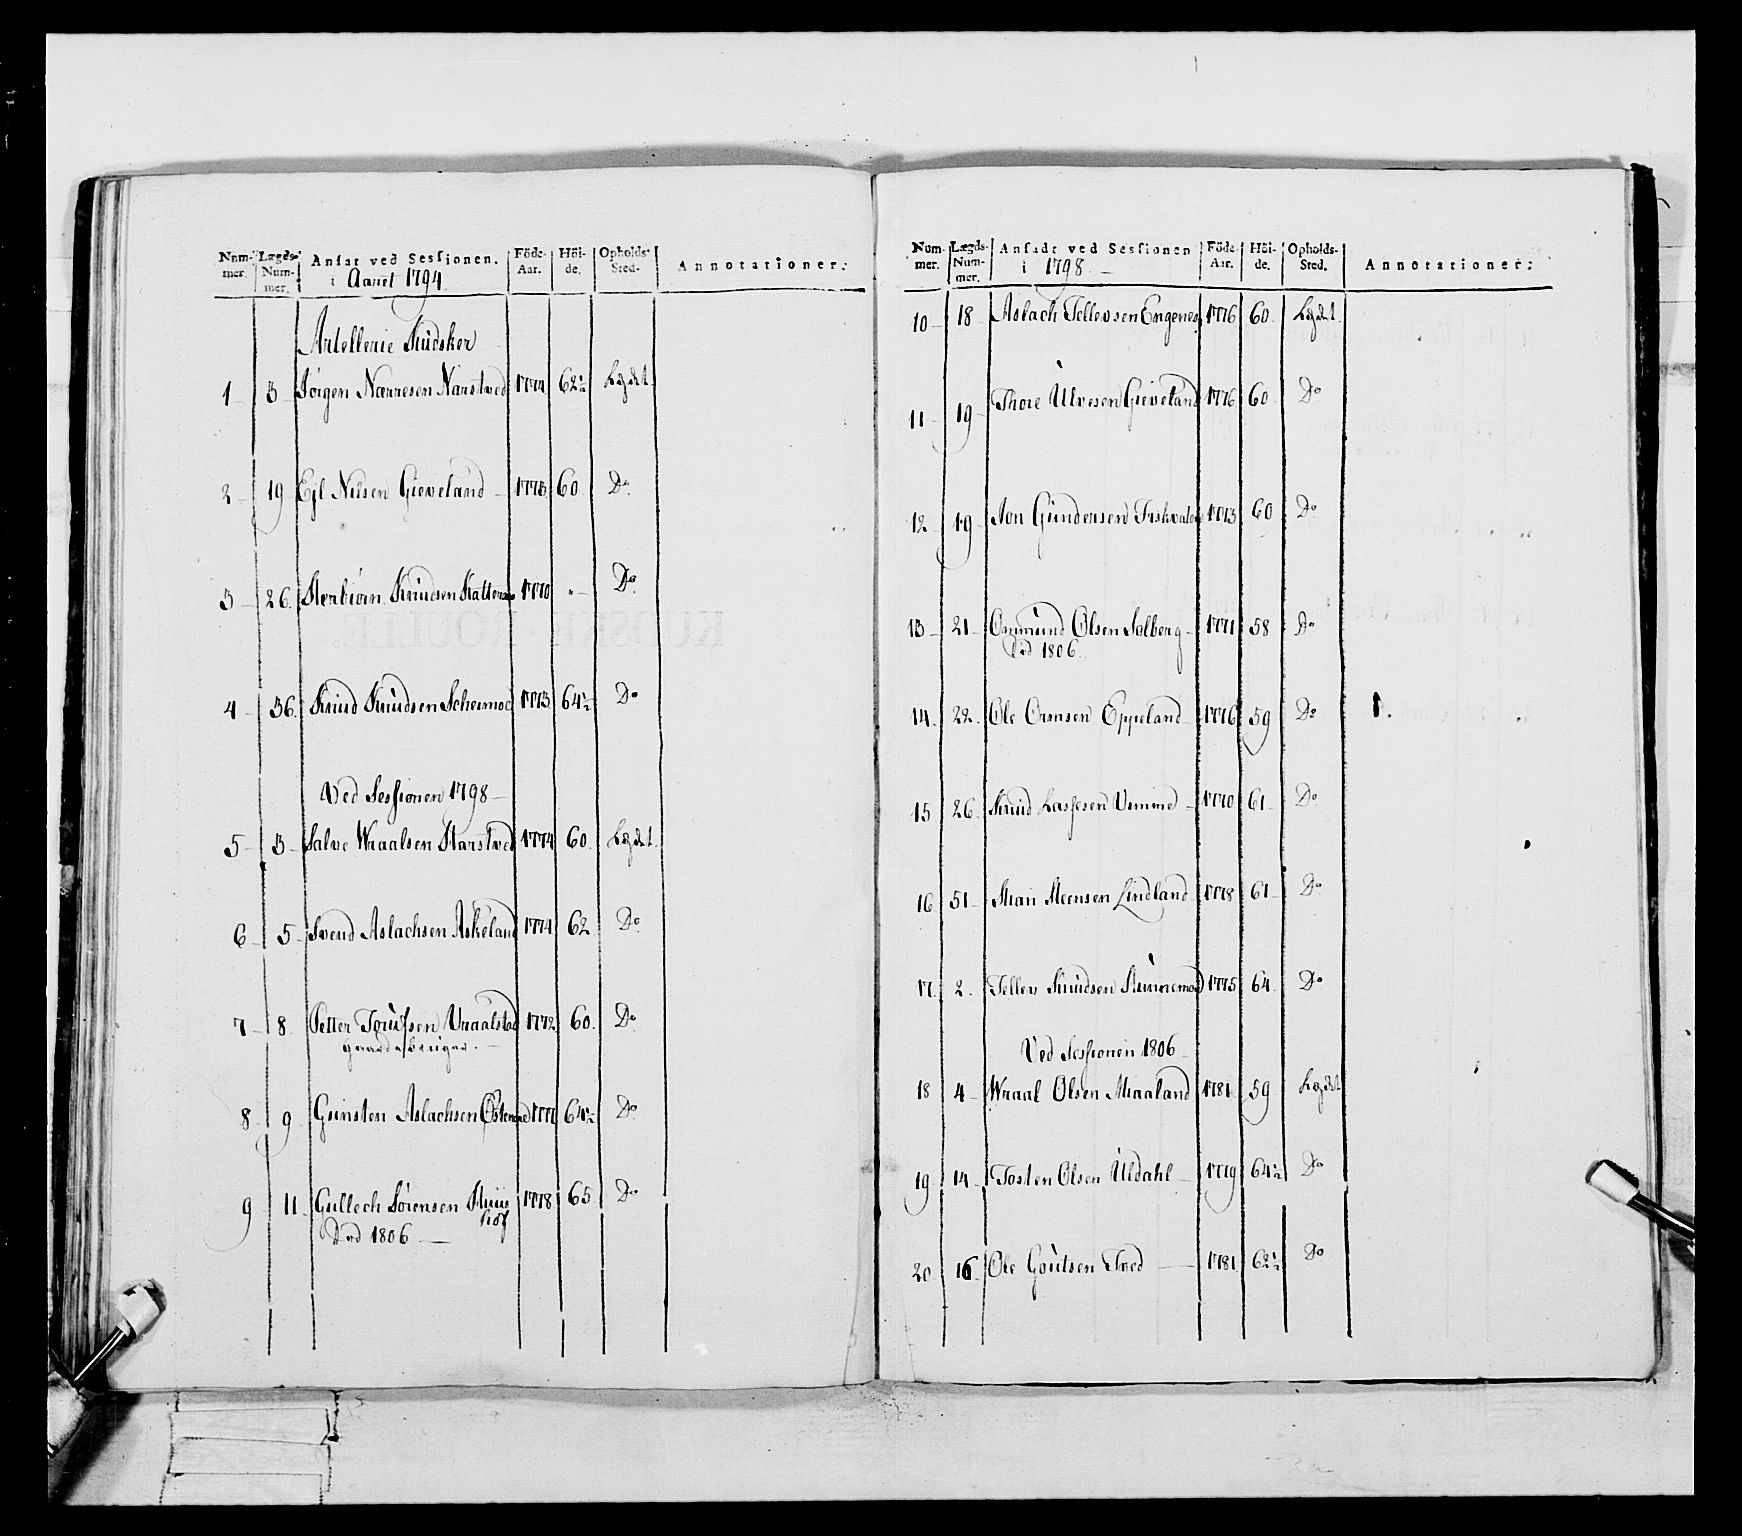 Num- Lægds- Ansat ved Sessionen. Föde- Höi- Opholds-
mer. Num- i Aaret 1794 Aar. de. Sted. Annotationer.
mer.
Artellerie Kudsker
1 3 Jörgen Narresen Narstved 1774 62½ Lægdet
2 19 Ejl Nilsen Gieveland 1775 60 Do
3 26 Sterbiörn Knudsen 1770 " Do
4 36 Knud Knudsen 1773 64½ Do
Ved Sessionen 1798
5 3 Salve Wraalsen 1774 60 Lægdet
6 5 Svend Aslachsen Askeland 1774 62 Do
7 8 Petter Vraalstad 1772 60 Do
Gaardebruger
8 9 Gunsten Aslachsen 64½ Do
9 11 Gullech Sörensen 1778 65 Do
Död 1806
Num- Lægds- Ansadt ved Sessionen Föde- Höi- Opholds-
mer. Num- i 1798 Aar. de. Sted. Annotationer.
mer.
10 18 Aslach Tellevsen Engenes 1776 60 Lægdet
11 19 Thore Ulvesen Gieveland 1776 60 Do
12 19 Jon Gundersen 1773 60 Do
13 21 Ommund Olsen Solberg 1771 58 Do
Död 1806
14 22 Ole Ormsen Eppeland 1776 59 Do
15 26 Knud Lassesen 1770 61 Do
16 51 Steensen Lindland 1778 61 Do
17 2 Tellev Knudsen 1775 64 Do
Ved Sessionen 1806
18 4 Wraal Olsen 1781 59 Lægdet
19 14 Tosten Olsen Uldahl 1779 64½ Do
20 16 Ole Goutsen Tved 1781 62½ Do